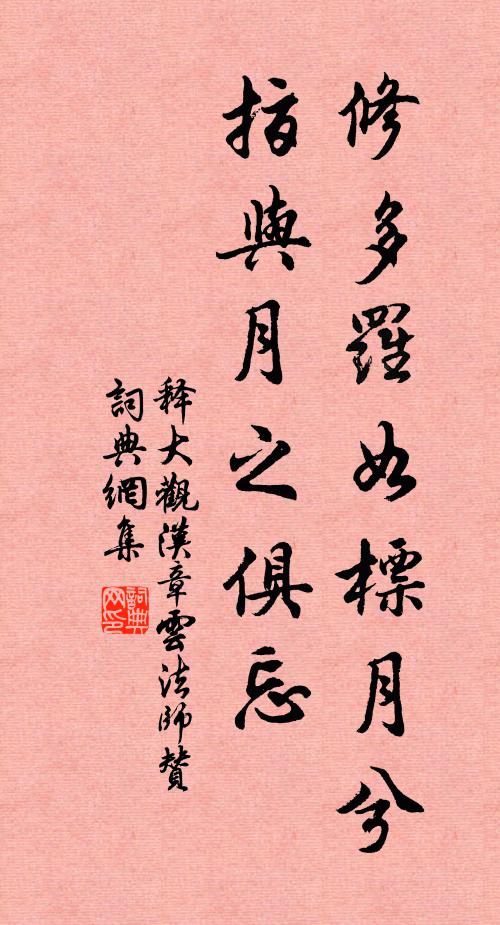 修多羅如標月兮
指與月之俱忘
释大觀漢章雲法師贊
詞典網集
詞典網印